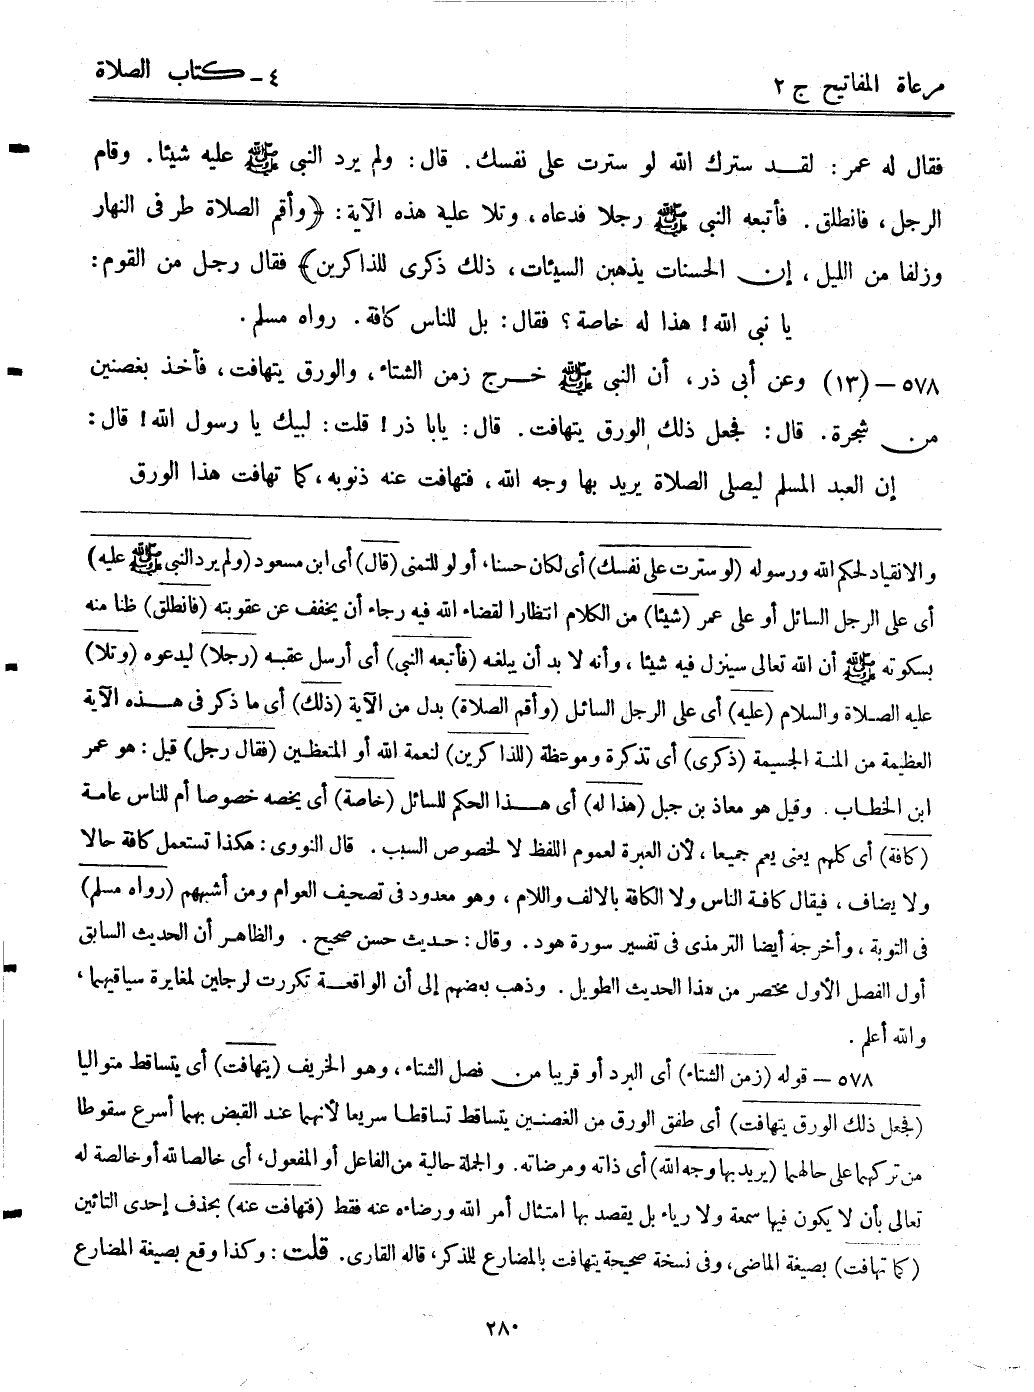 مرعاة المفاتيح ج ٢
٤ - كتاب الصلاة
فقال له عمر: لقد سترك الله لو سترت على نفسك. قال: ولم يرد النبي ﷺ عليه شيئا. وقام
الرجل، فانطلق. فأتبعه النبي ﷺ رجلا فدعاه، وتلا عليه هذه الآية: ﴿وأقم الصلاة طرفى النهار
وزلفا من الليل، إن الحسنات يذهبن السيئات، ذلك ذكرى للذاكرين﴾ فقال رجل من القوم:
يا نبى الله! هذا له خاصة؟ فقال: بل للناس كافة. رواه مسلم.
٥٧٨ - (١٣) وعن أبى ذر، أن النبى ﷺ خرج زمن الشتاء، والورق يتهافت، فأخذ بغصنين
من شجرة. قال: فجعل ذلك الورق يتهافت. قال: يابا ذر! قلت: لبيك يا رسول الله! قال:
إن العبد المسلم ليصلى الصلاة يريد بها وجه الله، فتهافت عنه ذنوبه، كما تهافت هذا الورق
والانقياد لحكم الله ورسوله (لو سترت على نفسك) أى لكان حسنا، أو لو للتمنى (قال) أى ابن مسعود (ولم يرد النبى ﷺ عليه)
أى على الرجل السائل أو على عمر (شيئا) من الكلام انتظارا لقضاء الله فيه رجاء أن يخفف عن عقوبته (فانطلق) ظنا منه
بسكوته ﷺ أن الله تعالى سينزل فيه شيئا، وأنه لا بد أن يبلغه (فأتبعه النبى) أى أرسل عقبه (رجلا) ليدعوه (وتلا)
عليه الصلاة والسلام (عليه) أى على الرجل السائل (وأقم الصلاة) بدل من الآية (ذلك) أى ما ذكر فى هذه الآية
العظيمة من المنة الجسيمة (ذكرى) أى تذكرة وموعظة (للذاكرين) لنعمة الله أو المتعظين (فقال رجل) قيل: هو عمر
ابن الخطاب. وقيل هو معاذ بن جبل (هذا له) أى هذا الحكم للسائل (خاصة) أى يخصه خصوصا أم للناس عامة
(كافة) أى كلهم يعنى يعم جميعا، لأن العبرة لعموم اللفظ لا لخصوص السبب. قال النووى: هكذا تستعمل كافة حالا
ولا يضاف، فيقال كافة الناس ولا الكافة بالالف واللام، وهو معدود فى تصحيف العوام ومن أشبههم (رواه مسلم)
فى التوبة، وأخرجه أيضا الترمذى فى تفسير سورة هود. وقال: حديث حسن صحيح. والظاهر أن الحديث السابق
أول الفصل الأول مختصر من هذا الحديث الطويل. وذهب بعضهم إلى أن الواقعة تكررت لرجلين لمغايرة سياقيهما،
والله أعلم.
٥٧٨ - قوله (زمن الشتاء) أى البرد أو قريبا من فصل الشتاء، وهو الخريف (يتهافت) أى يتساقط متواليا
(فجعل ذلك الورق يتهافت) أى طفق الورق من الغصنين يتساقط تساقطا سريعا لأنهما عند القبض بهما أسرع سقوطا
من تركهما على حالهما (يريد بها وجه الله) أى ذاته ومرضاته. والجملة حالية من الفاعل أو المفعول، أى خالصا لله أو خالصة له
تعالى بأن لا يكون فيها سمعة ولا رياء بل يقصد بها امتثال أمر الله ورضاءه عنه فقط (فتهافت عنه) بحذف إحدى التائين
(كما تهافت) بصيغة الماضى، وفى نسخة صحيحة يتهافت بالمضارع للمذكر، قاله القارى. قلت: وكذا وقع بصيغة المضارع
٢٨٠